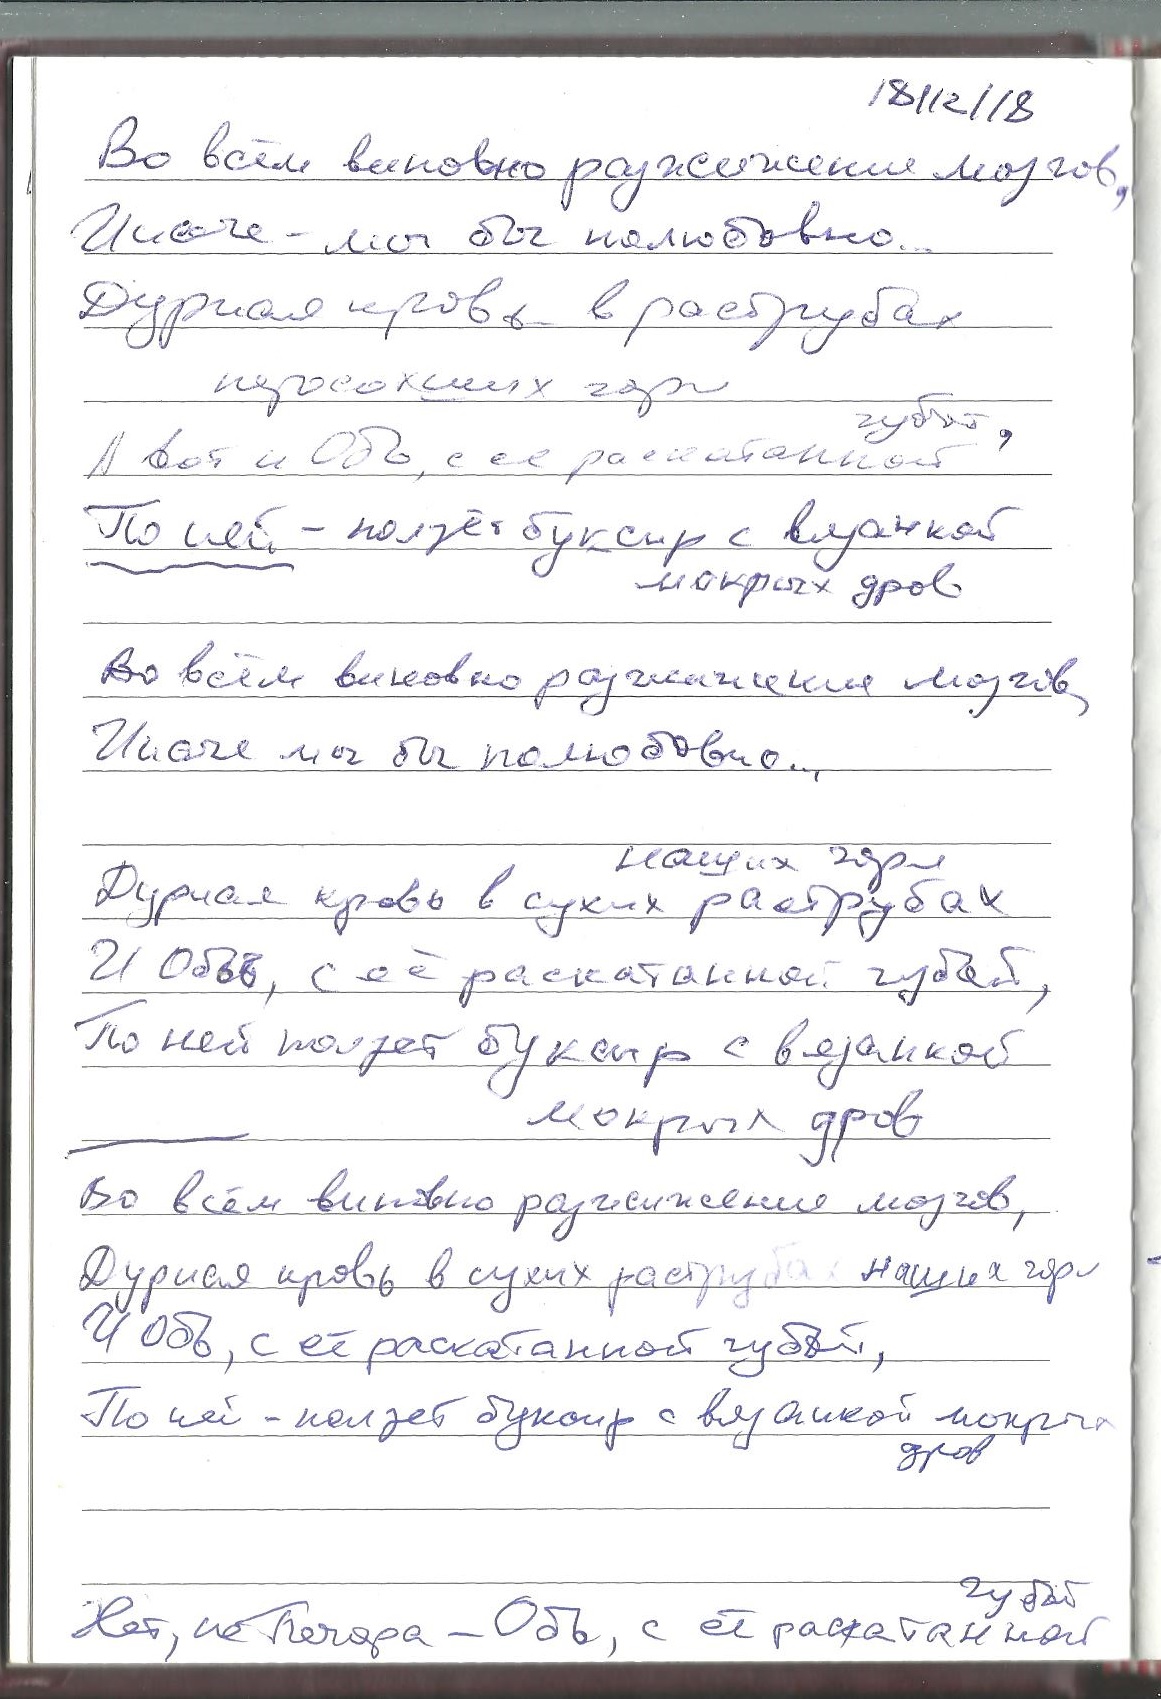 18/12/18
Во всём виновно разжижение мозгов,
Иначе – мы бы полюбовно...
Дурная кровь в раструбах
пересохших горл
А вот и Обь, с её раскатанной губой,
По ней – ползёт буксир с вязанкой
мокрых дров
Во всём виновно разжижение мозгов,
Иначе мы бы полюбовно...
Дурная кровь в сухих раструбах наших горл
И Обь, с её раскатанной губой,
По ней ползет буксир с вязанкой
мокрых дров
Во всём виновно разжижение мозгов,
Дурная кровь в сухих раструбах наших горл
И Обь, с её раскатанной губой,
По ней – ползет буксир с вязанкой мокрых
дров
Нет, не Печора – Обь, с её раскатанной губой